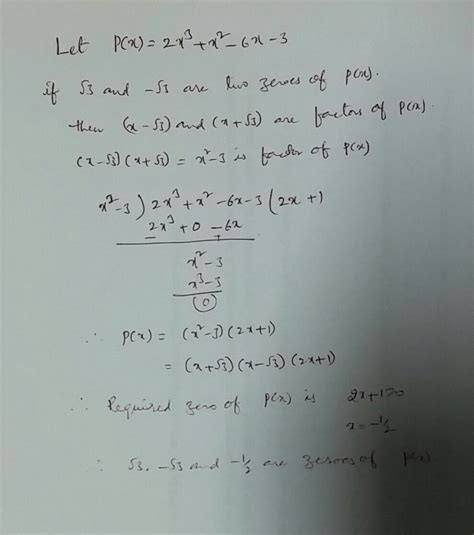 Let P(x) = 2x³+x²-6x-3
if √3 and -√3 are two zeroes of p(x).
then (x-√3) and (x+√3) are factors of p(x).
(x-√3)(x+√3) = x²-3 is factor of p(x)
x²-3 ) 2x³+x²-6x-3 ( 2x+1
2x³+0-6x
- +
x²-3
x³-3
(0)
∴ P(x) = (x²-3)(2x+1)
= (x+√3)(x-√3)(2x+1)
∴ Required zero of p(x) is 2x+1=0
x=-1/2
∴ √3, -√3 and -1/2 are zeroes of p(x)